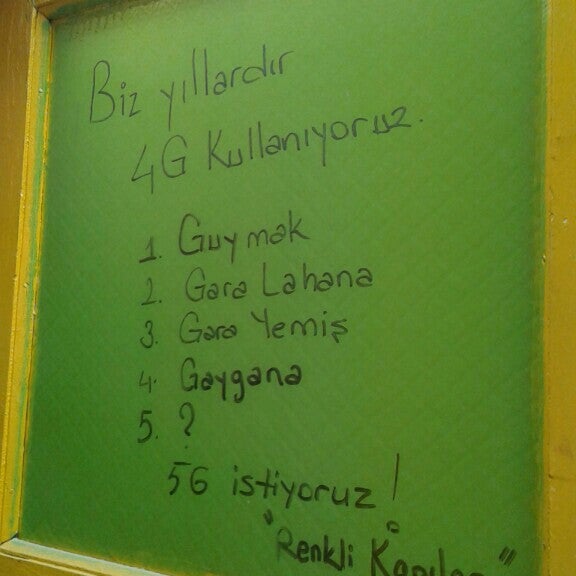 Biz yıllardır
4G Kullanıyoruz.
1. Guymak
2. Gara Lahana
3. Gara Yemiş
4. Gaygana
5. ?
5G istiyoruz!
"Renkli Kapılar"